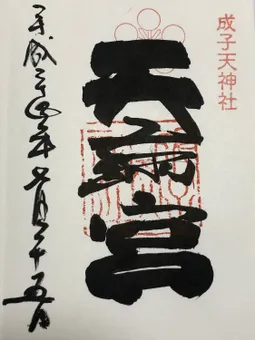 成子天神社
天満宮
平成二十四年七月二十五日